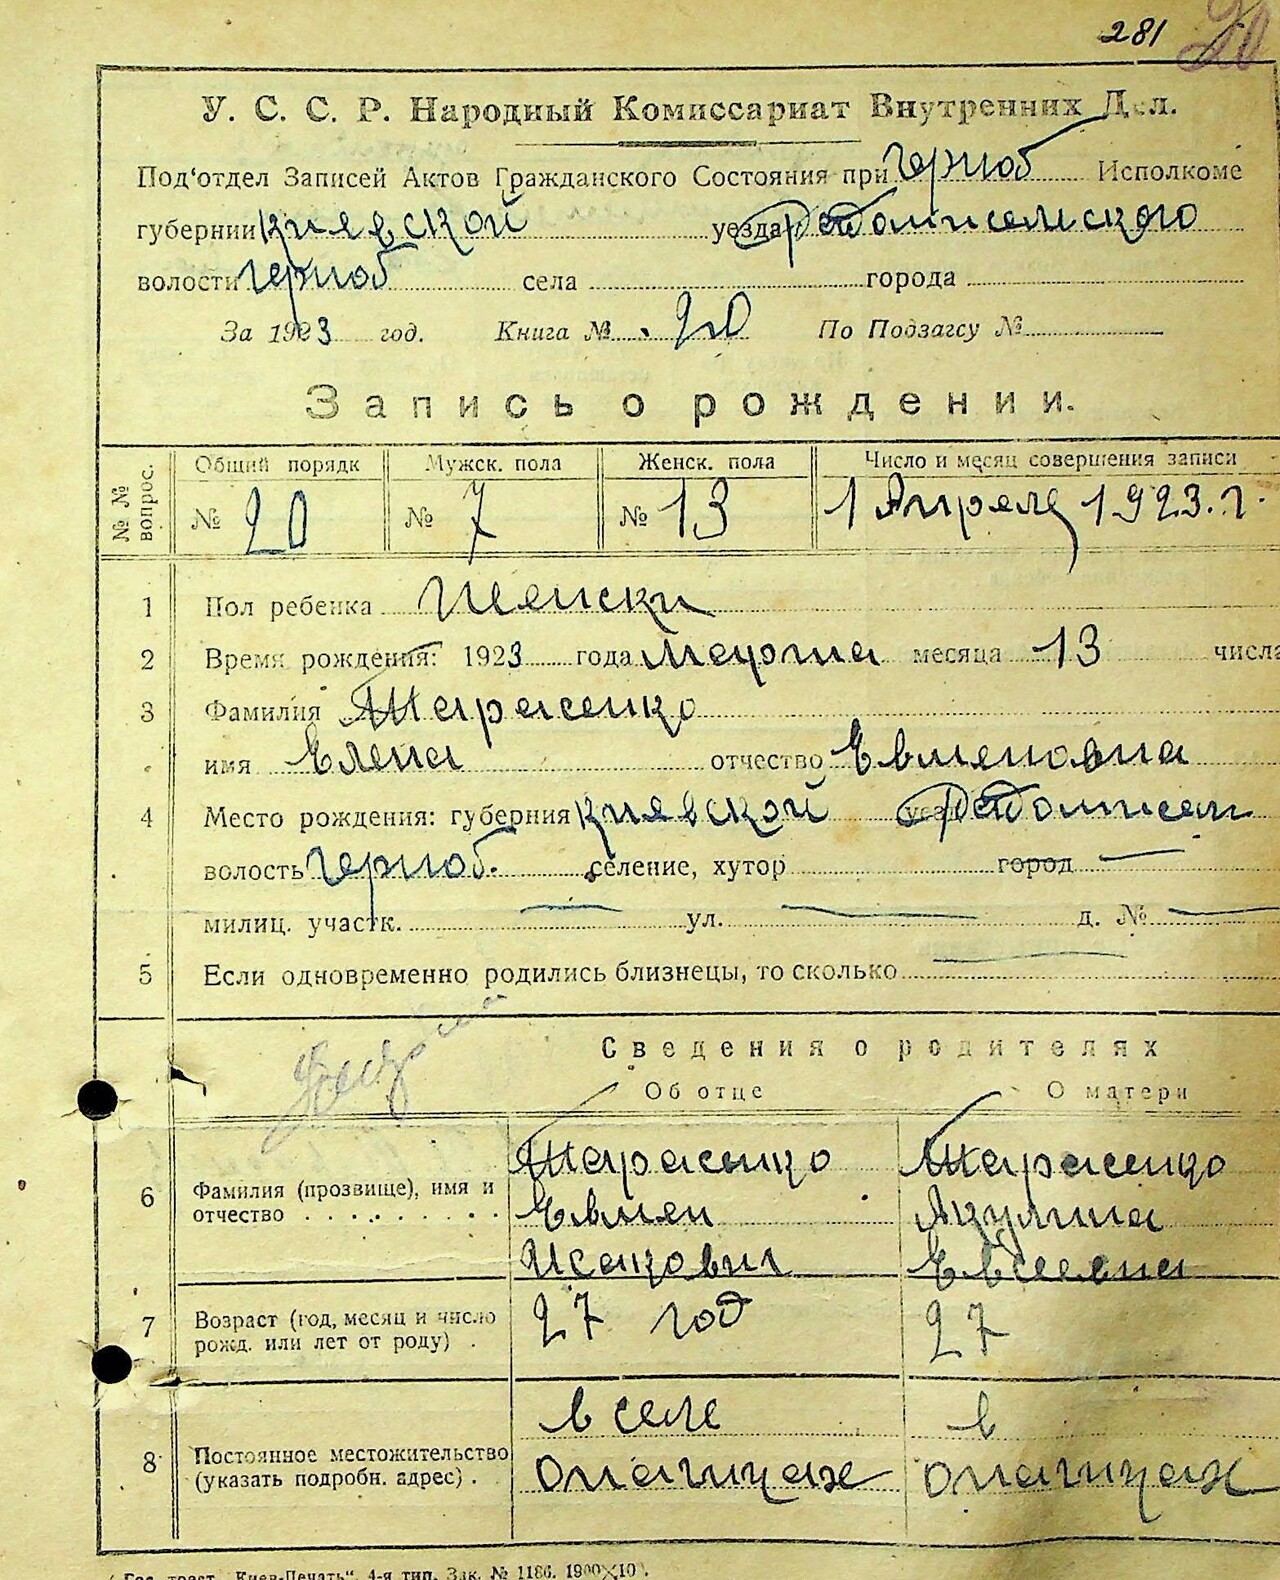 281 20
У. С. С. Р. Народный Комиссариат Внутренних Дел.
Под'отдел Записей Актов Гражданского Состояния при Черноб Исполкоме
губернии Киевской уезда Радомисельского
волости Черноб села города
За 1923 год. Книга № 20 По Подзагсу №
Запись о рождении.
№ № вопрос. Общий порядк Мужск. пола Женск. пола Число и месяц совершения записи
№ 20 № 7 № 13 1 Апреля 1923. г.
1 Пол ребенка Женски
2 Время рождения: 1923 года марта месяца 13 числа
3 Фамилия Тарасенко
имя Елена отчество Евменовна
4 Место рождения: губерния Киевской уезд Радомисел
волость Черноб. селение, хутор город —
милиц. участк. — ул. — д. № —
5 Если одновременно родились близнецы, то сколько —
Сведения о родителях
Об отце О матери
6 Фамилия (прозвище), имя и отчество Тарасенко Тарасенко
Евмен Акулина
Исакович Евсеевна
7 Возраст (год, месяц и число рожд. или лет от роду) . 27 год 27
8 Постоянное местожительство (указать подробн. адрес) . в селе в
Опачицах Опачицах
Гос. трест „Киев-Печать", 4-я тип. Зак. № 1186. 1900×10